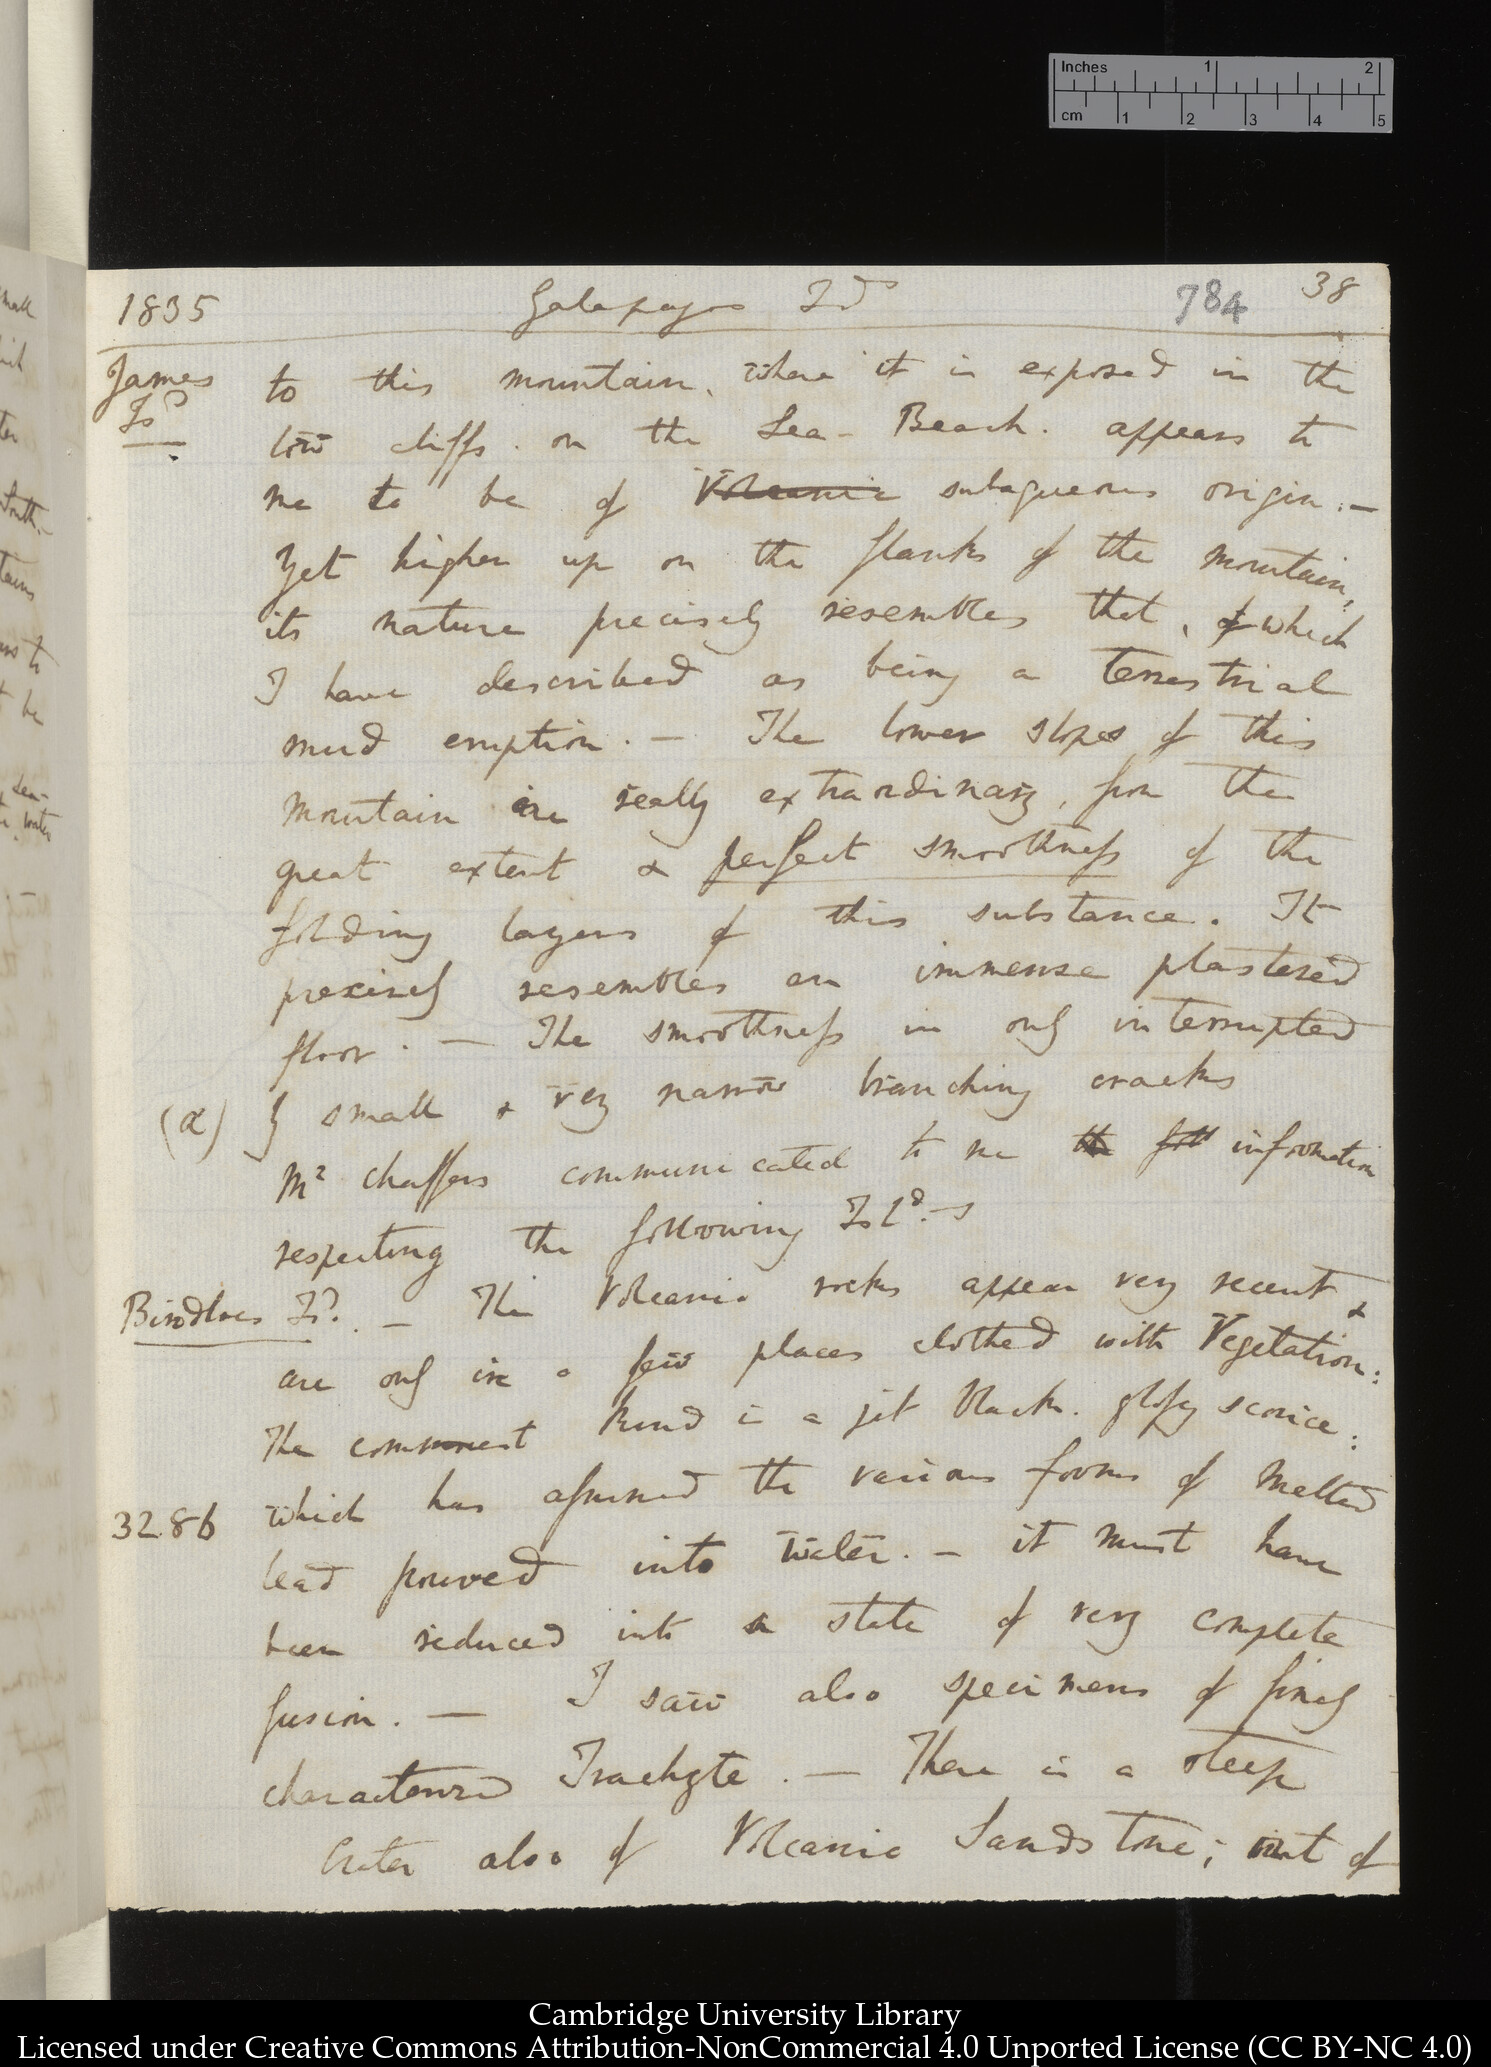 Inches 1 2
cm 1 2 3 4 5
1835 Galapagos Ids 784 38
James to this mountain, where it is exposed in the
Isd low cliffs. on the Sea-Beach. appears to
me to be of Volcanic subaqueous origin. —
Yet higher up on the flanks of the mountain,
its nature precisely resembles that, of which
I have described as being a terrestrial
mud eruption. — The lower slopes of this
mountain are really extraordinary, from the
great extent & perfect smoothness of the
folding layers of this substance. It
precisely resembles an immense plastered
floor. — The smoothness is only interrupted
(α) by small & very narrow branching cracks
Mr Chaffers communicated to me the foll information
respecting the following Isld.s
Bindloes Isd. — The Volcanic rocks appear very recent &
are only in a few places clothed with Vegetation:
The commonest kind is a jet black. glossy scoriæ:
3286 which has assumed the various forms of melted
lead poured into water. — it must have
been reduced into a state of very complete
fusion. — I saw also specimens of finely
characterized Trachyte. — There is a steep
Crater also of Volcanic Sandstone; out of
Cambridge University Library
Licensed under Creative Commons Attribution-NonCommercial 4.0 Unported License (CC BY-NC 4.0)